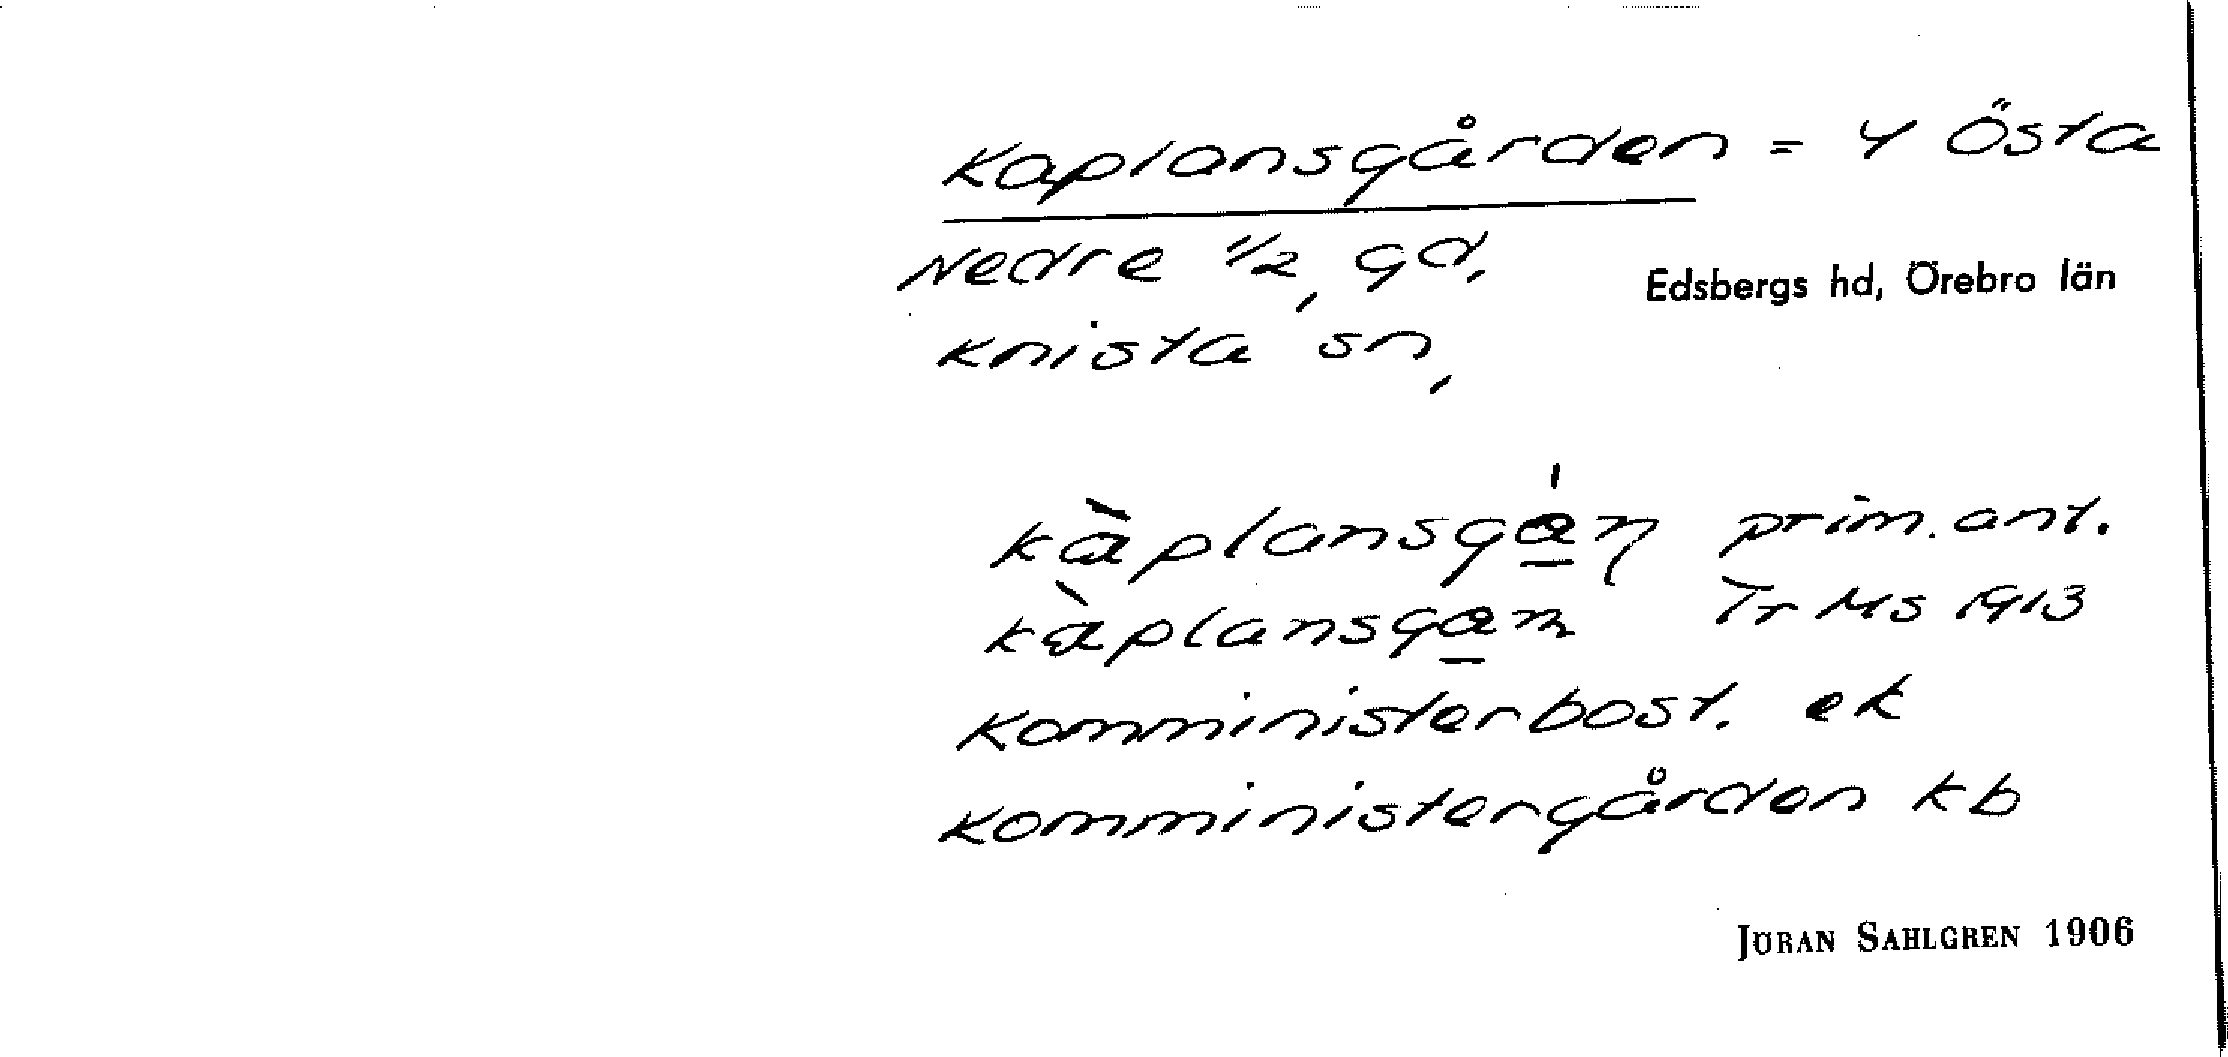 Kaplansgården = 4 Östa
Nedre 1/2, gd,
Edsbergs hd, Örebro län
Knista sn,
prim. ant.
Tr Ms 1913
Komministerbost. ek
Komministergården kb
JÖRAN SAHLGREN 1906